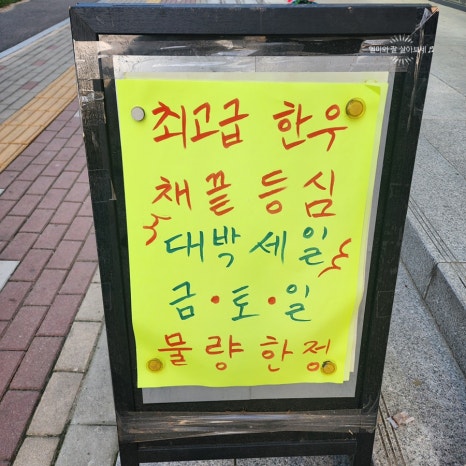 엄마와 잘 살아보세
최고급 한우
채끝 등심
대박세일
금·토·일
물량한정